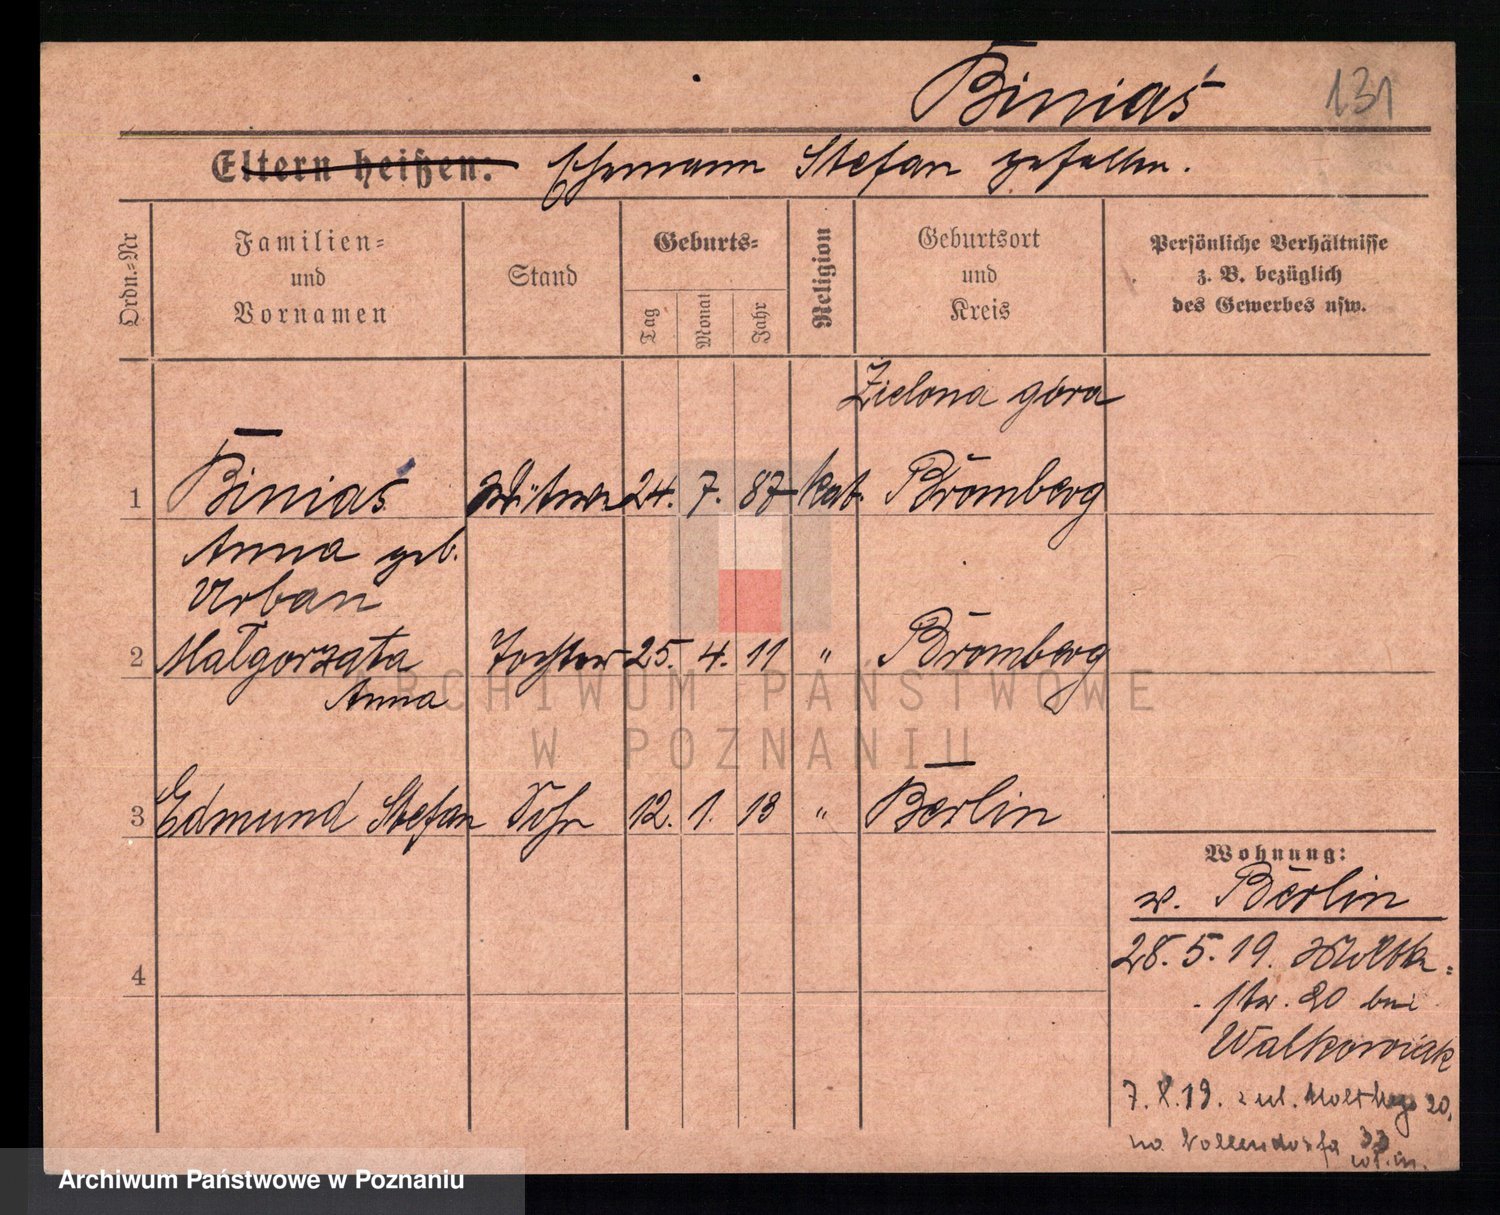 Biniaś 131
Eltern heißen: Ehemann Stefan gefallen.
Ordn.=Nr
Familien=
und
Vornamen
Stand
Geburts=
Tag
Monat
Jahr
Religion
Geburtsort
und
Kreis
Persönliche Verhältnisse
z. B. bezüglich
des Gewerbes usw.
Zielona góra
1 Biniaś Witwe 24. 7. 87 kat. Bromberg
Anna geb.
Urban
2 Małgorzata Tochter 25. 4. 11 " Bromberg
Anna
ARCHIWUM PAŃSTWOWE
W POZNANIU
3 Edmund Stefan Sohn 12. 1. 13 " Berlin
Wohnung:
v. Berlin
28. 5. 19. Moltk=
str. 20 bei
Walkowiak
4
7. X. 19. z ul. Moltkego 20.
na Wollendorfa 33
Archiwum Państwowe w Poznaniu